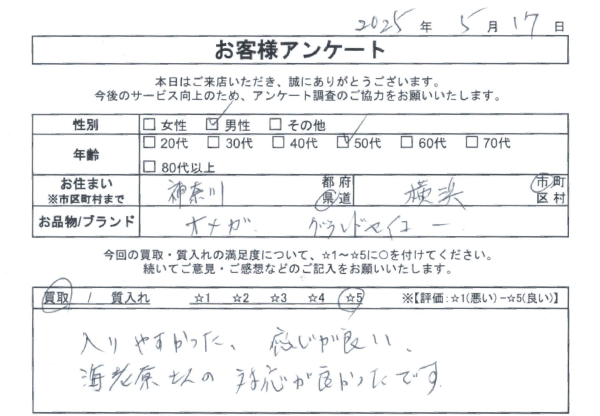 2025年 5月 17日
お客様アンケート
本日はご来店いただき、誠にありがとうございます。
今後のサービス向上のため、アンケート調査のご協力をお願いいたします。
性別 □ 女性 ☑ 男性 □ その他
年齢 □ 20代 □ 30代 □ 40代 ☑ 50代 □ 60代 □ 70代
□ 80代以上
お住まい 神奈川 都府県道 横浜 市町区村
※市区町村まで
お品物/ブランド オメガ グランドセイコー
今回の買取・質入れの満足度について、☆1～☆5に○を付けてください。
続いてご意見・ご感想などのご記入をお願いいたします。
買取 / 質入れ ☆1 ☆2 ☆3 ☆4 ☆5 ※【評価:☆1(悪い)－☆5(良い)】
入りやすかった、感じが良い、
海老原さんの対応が良かったです